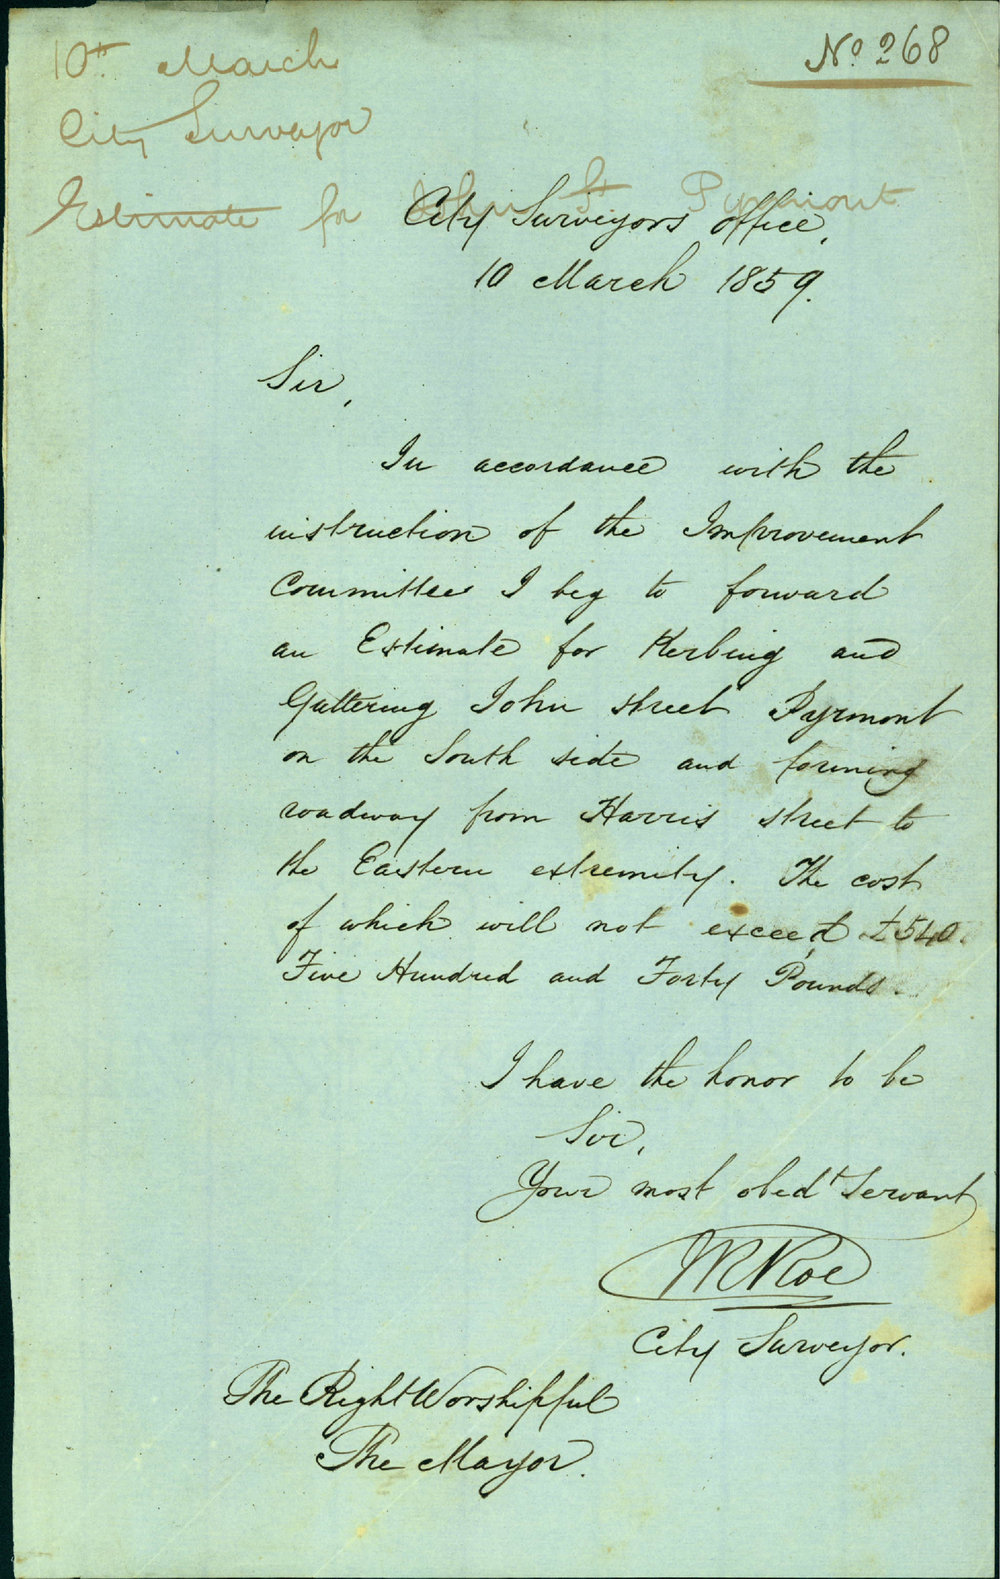 No. 268
10th March
City Surveyor
Estimate for John St Pyrmont
City Surveyors Office,
10 March 1859.
Sir,
In accordance with the
instruction of the Improvement
Committee I beg to forward
an Estimate for Kerbing and
Guttering John street Pyrmont
on the South side and forming
roadway from Harris street to
the Eastern extremity. The cost
of which will not exceed £540.
Five Hundred and Forty Pounds.
I have the honor to be
Sir,
Your most obedt Servant
W R Roe
City Surveyor.
The Right Worshipful
The Mayor.